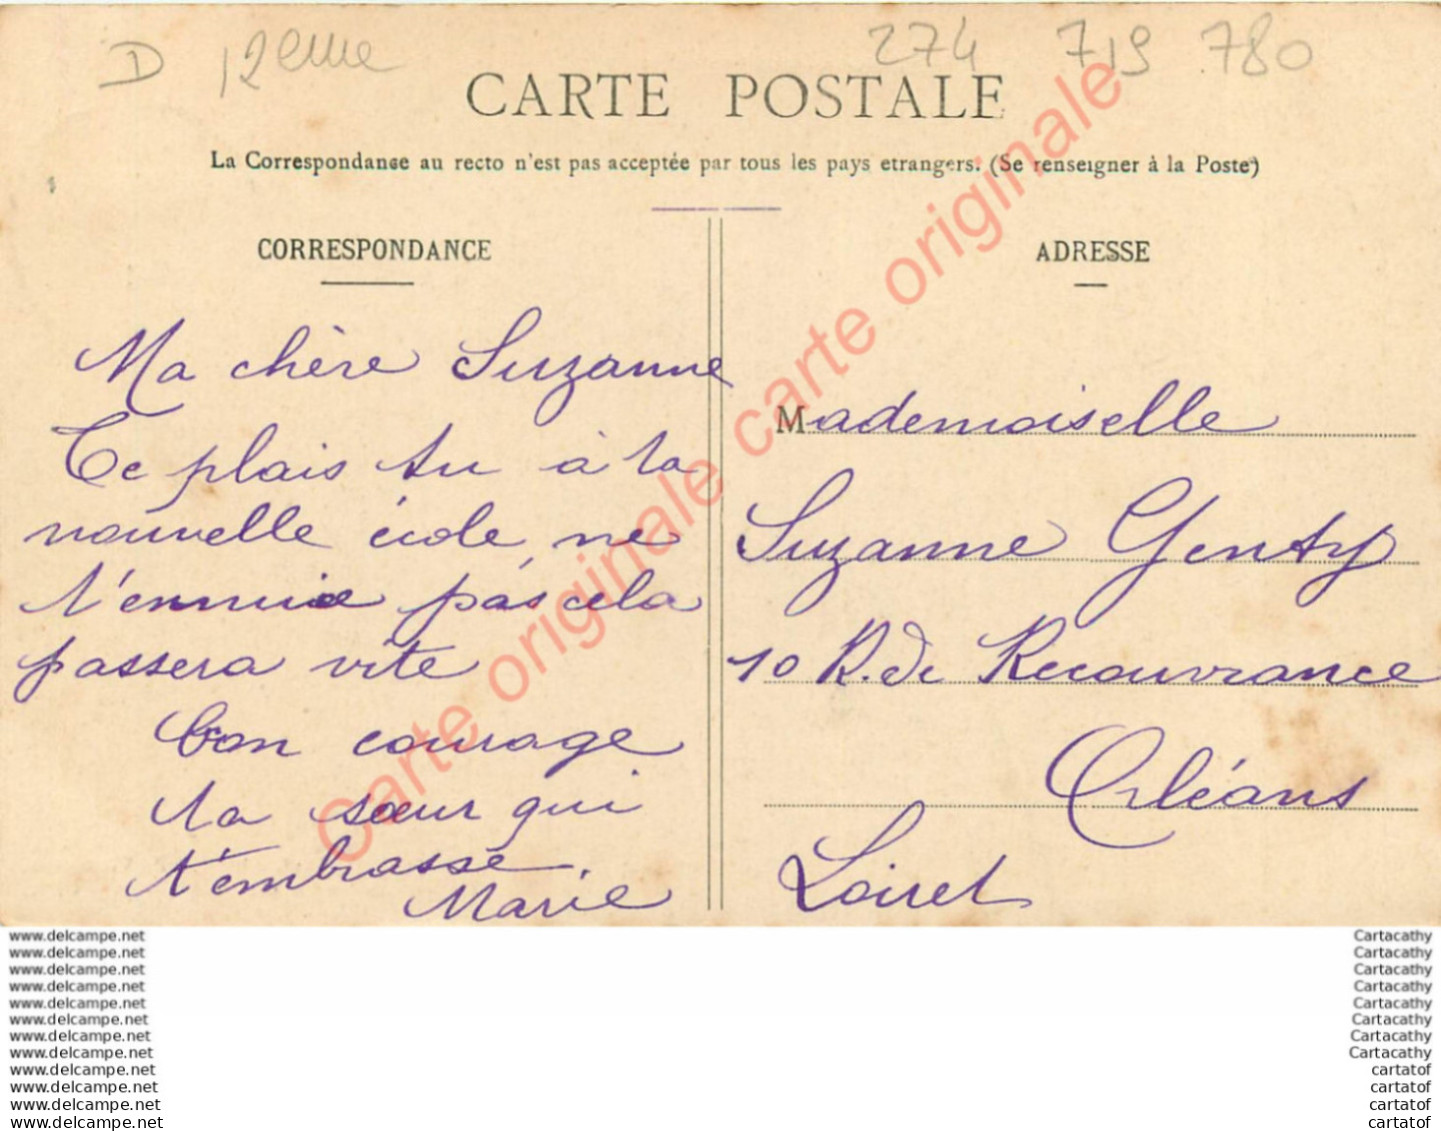 D 12eme 274 719 780
CARTE POSTALE
La Correspondance au recto n'est pas acceptée par tous les pays etrangers. (Se renseigner à la Poste)
CORRESPONDANCE
Ma chère Suzanne
Te plais tu à ta
nouvelle école, ne
t'ennuie pas cela
passera vite
bon courage
ta sœur qui
t'embrasse.
Marie
ADRESSE
Mademoiselle
Suzanne Genty
10 R. de Recouvrance
Orléans
Loiret
Carte originale carte originale
www.delcampe.net Cartacathy
www.delcampe.net Cartacathy
www.delcampe.net Cartacathy
www.delcampe.net Cartacathy
www.delcampe.net Cartacathy
www.delcampe.net Cartacathy
www.delcampe.net Cartacathy
www.delcampe.net Cartacathy
www.delcampe.net cartatof
www.delcampe.net cartatof
www.delcampe.net cartatof
www.delcampe.net cartatof